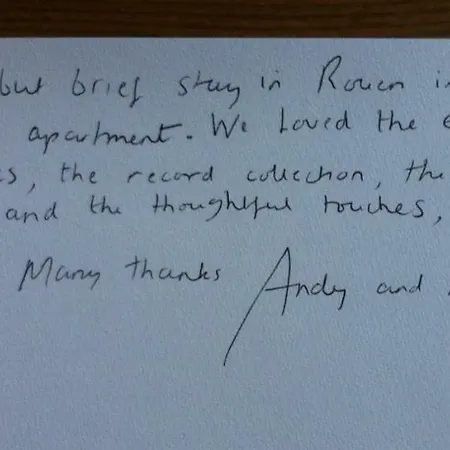 but brief stay in Rouen in
apartment. We loved the
, the record collection, the
and the thoughtful touches,
Many thanks Andy and